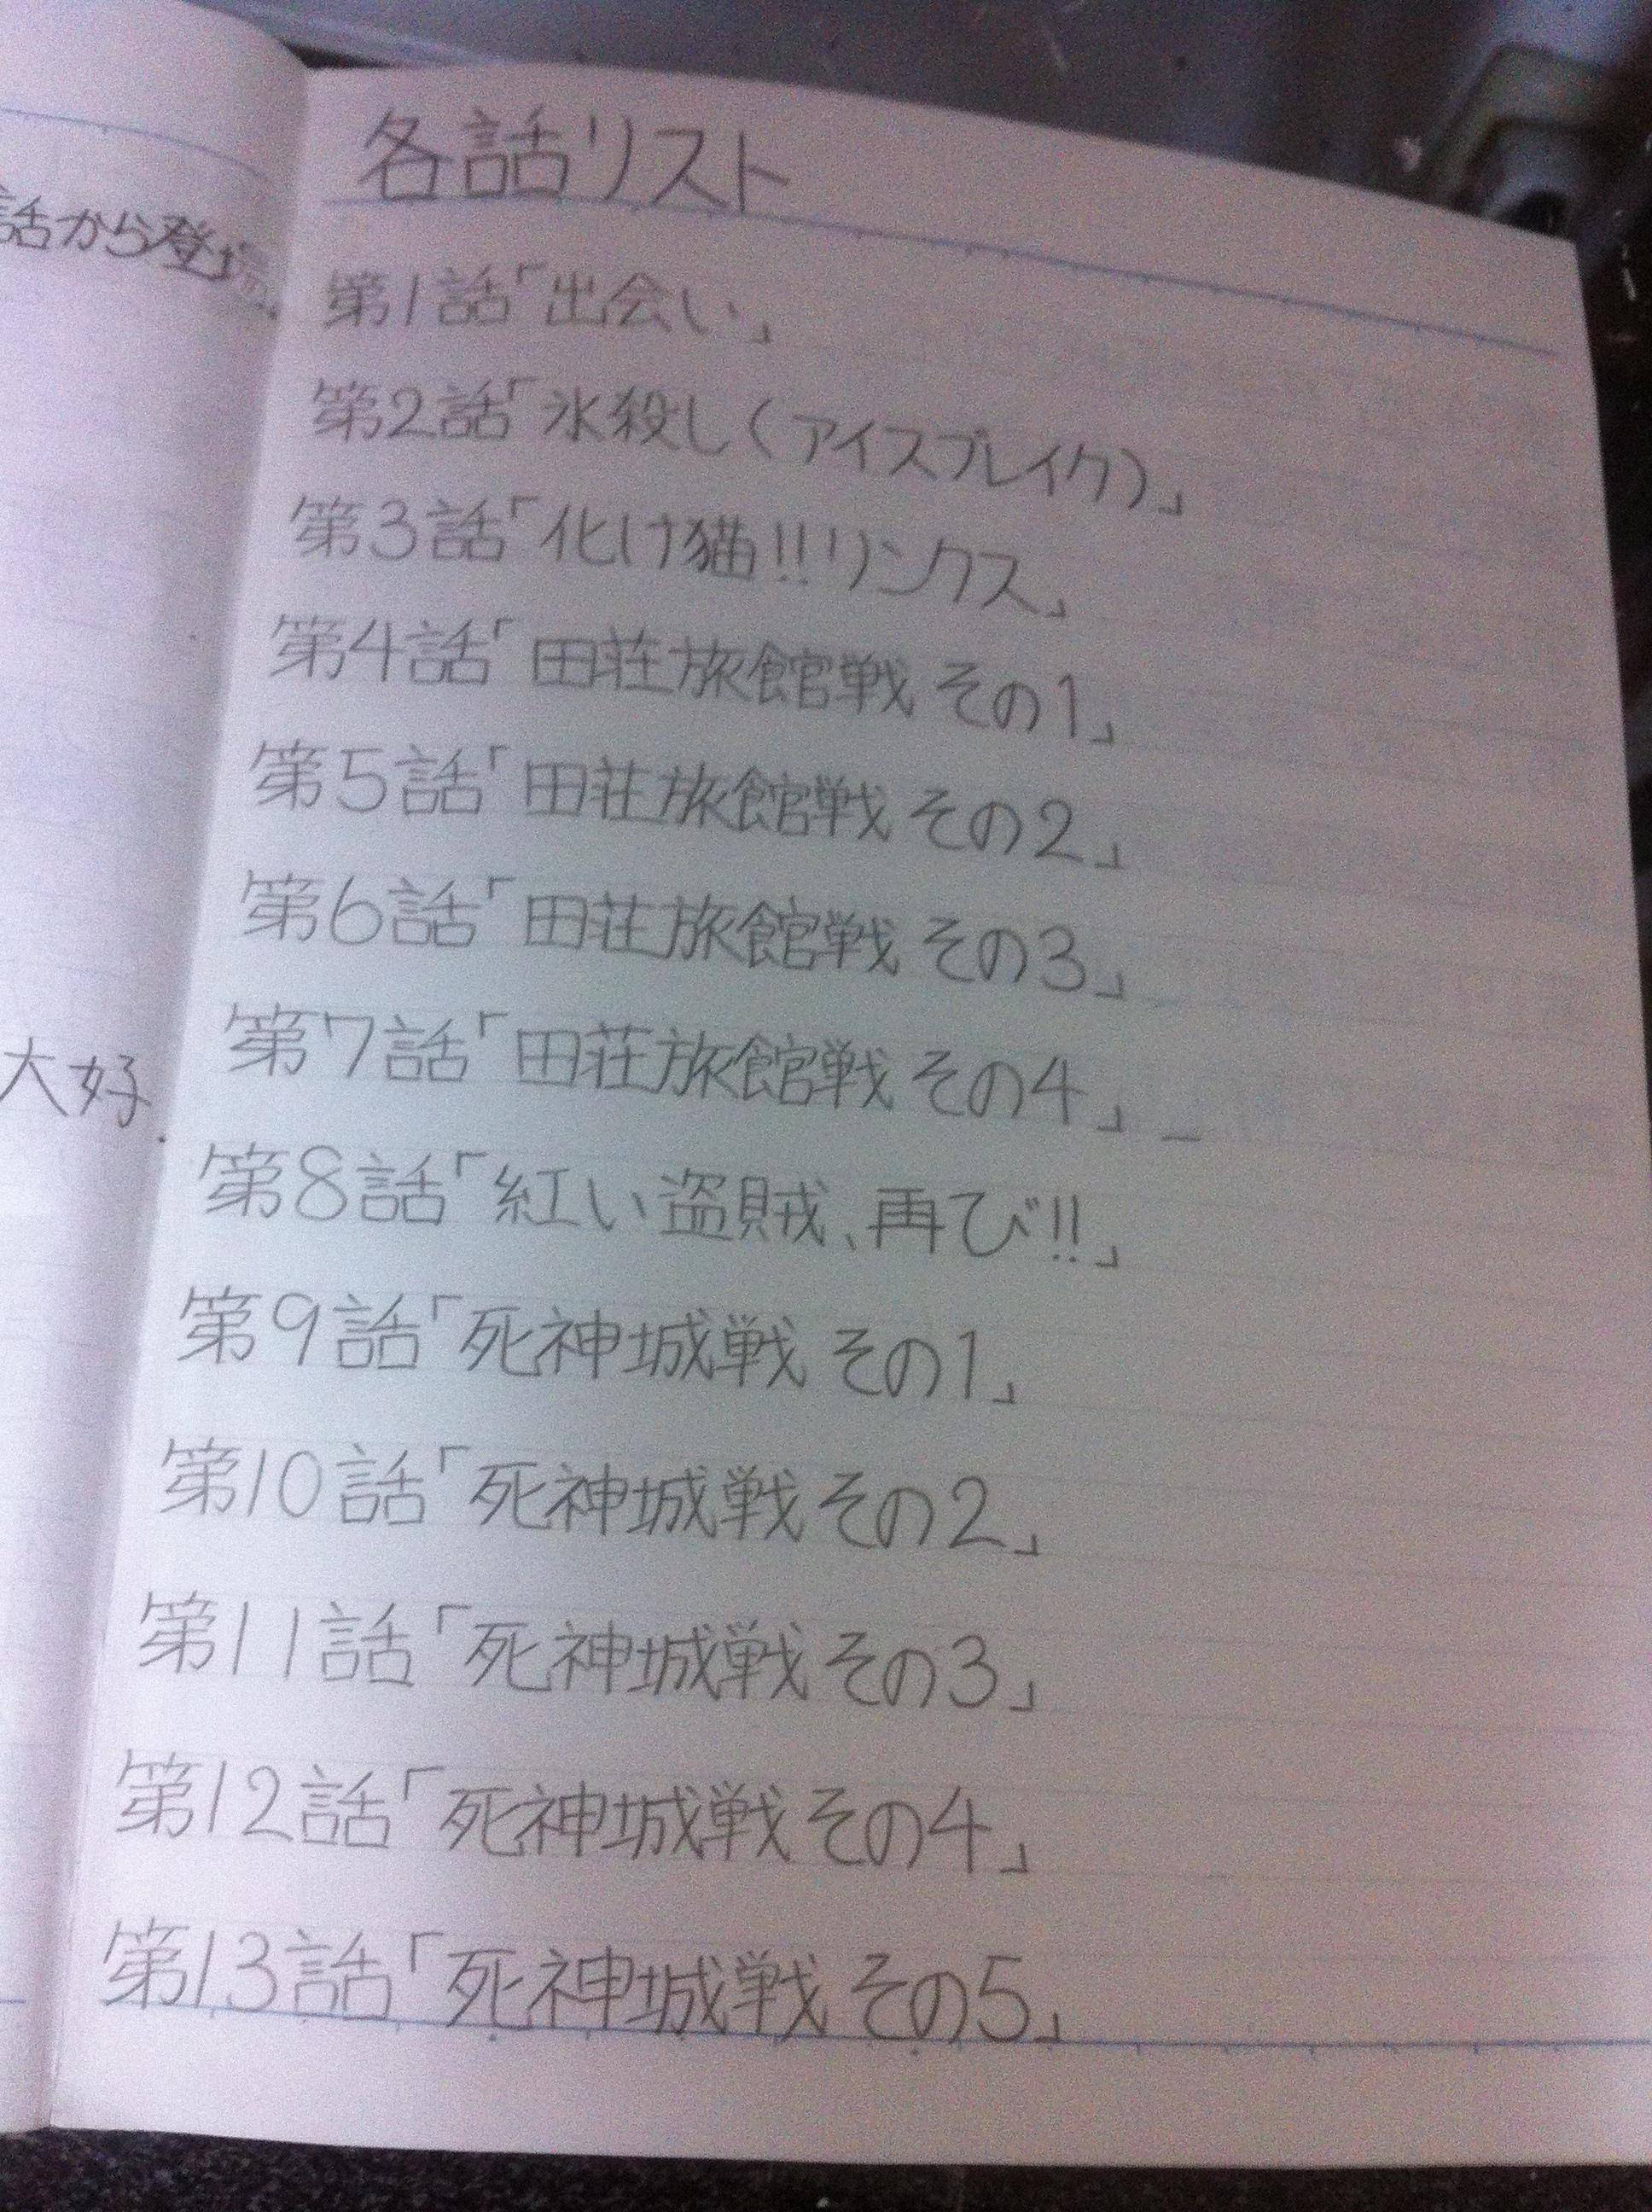 話から登場
大好
各話リスト
第1話「出会い」
第2話「氷殺し(アイスブレイク)」
第3話「化け猫!!リンクス」
第4話「田荘旅館戦 その1」
第5話「田荘旅館戦 その2」
第6話「田荘旅館戦 その3」
第7話「田荘旅館戦 その4」
第8話「紅い盗賊、再び!!」
第9話「死神城戦 その1」
第10話「死神城戦 その2」
第11話「死神城戦 その3」
第12話「死神城戦 その4」
第13話「死神城戦 その5」